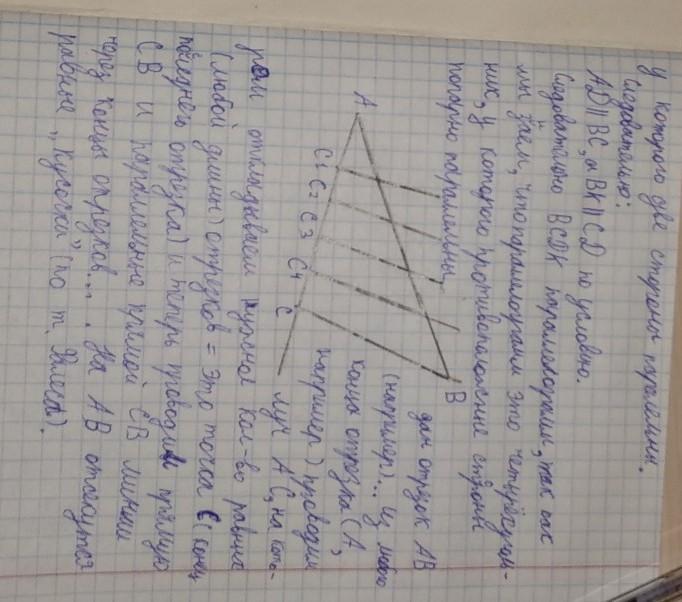 у которого две стороны паралельны.
Следовательно:
AD∥BC, а BK∥CD по условию.
Следовательно BCDK параллелограмм, так как
мы знаем, что параллелограмм это четырёхуголь-
ник, у которого противоположные стороны
попарно паралельны
A
C1
C2
C3
C4
C
B
дан отрезок AB
(например).. Из любого
конца отрезка (A,
например) проводим
луч A C, на кото-
ром откладываем нужное кол-во равных
(любой длины) отрезков = это точка C (конец
последнего отрезка) и теперь проводим прямую
CB и параллельные прямой CB линии
через концы отрезков... . На AB отсекутся
равные „кусочки" (по т. Фалеса).